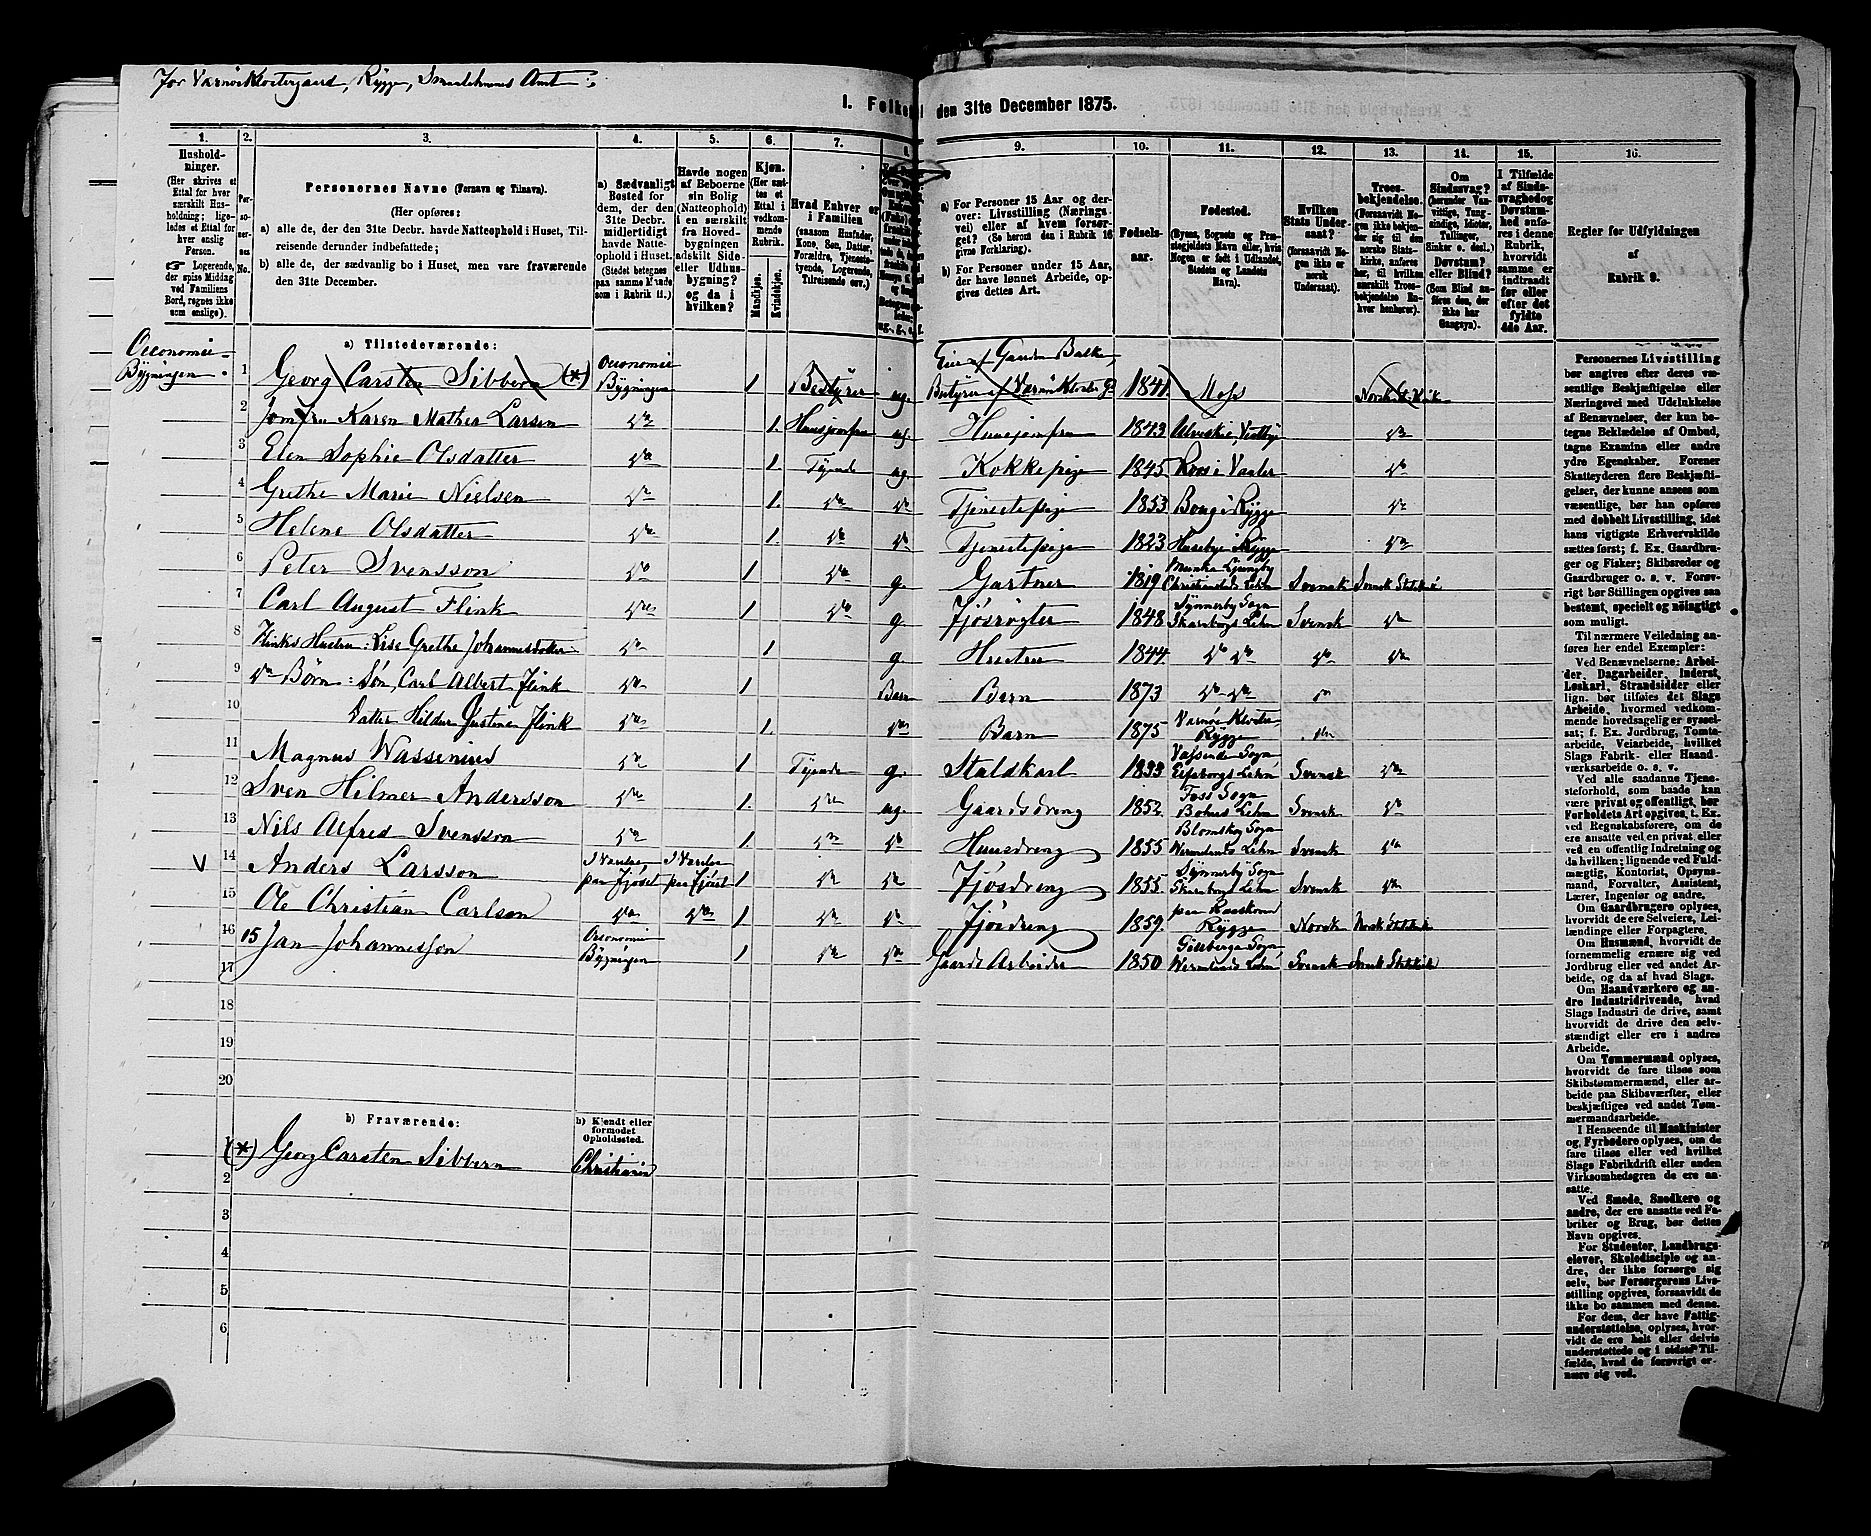 For Varnø Klostergaard, Rygge, Smaalehnenes Amt:
1. Folket den 31te December 1875.
1. 2. 3. 4. 5. 6. 7. 8. 9. 10. 11. 12. 13. 14. 15. 16.
Husholdninger. (Her skrives et Ettal for hver særskilt Husholdning; ligeledes et Ettal for hver enslig Person. ☞ Logerende, der spise Middag ved Familiens Bord, regnes ikke som enslige).
Personernes No.
Personernes Navne (Fornavn og Tilnavn).
(Her opføres:
a) alle de, der den 31te Decbr. havde Natteophold i Huset, Tilreisende derunder indbefattede;
b) alle de, der sædvanlig bo i Huset, men vare fraværende den 31te December.
a) Sædvanligt Bosted for dem, der den 31te Decbr. midlertidigt havde Natteophold i Huset. (Stedet betegnes paa samme Maade som i Rubrik 11.)
Havde nogen af Beboerne sin Bolig (Natteophold) i en særskilt fra Hovedbygningen adskilt Side- eller Udhusbygning? og da i hvilken?
Kjøn. (Her sættes et Ettal i vedkommende Rubrik.
Mandkjøn. Kvindekjøn.
Hvad Enhver er i Familien (saasom Husfader, Kone, Søn, Datter, Forældre, Tjenestetyende, Logerende, Tilreisende osv.)
a) For Personer 15 Aar og derover: Livsstilling (Næringsvei) eller af hvem forsørget? (Se herom den i Rubrik 16 givne Forklaring).
b) For Personer under 15 Aar, der have lønnet Arbeide, opgives dettes Art.
Fødselsaar.
Fødested. (Byens, Sognets og Præstegjeldets Navn eller, hvis Nogen er født i Udlandet, Stedets og Landets Navn).
Hvilken Stats Undersaat? (forsaavidt Nogen ikke er norsk Undersaat).
Troesbekjendelse. (Forsaavidt Nogen ikke bekjender sig til den norske Statskirke, anføres her, til hvilken særskilt Troesbekjendelse Enhver henhører).
Om Sindssvag? (herunder Vanvittige, Tungsindige, Idioter, Tullinger, Sinker o. desl.) Døvstum? eller Blind? (Som Blind anføres den, der ikke har Gangsyn).
I Tilfælde af Sindssvaghed og Døvstumhed anføres i denne Rubrik, hvorvidt samme er indtraadt før eller efter det fyldte 4de Aar.
Regler for Udfyldningen af Rubrik 9.
Oeconomie-Bygningen.
a) Tilstedeværende:
1 Georg Carsten Sibbern (*) Oeconomie Bygningen 1 Bestyrer ug. Eier af Gaarden Balke, Bestyrer af Varnø Kloster 1841 Moss
2 Jomfru Karen Mathea Larsen do 1. Huusjomfru ug. Huusjomfru 1843 Vestby do
3 Elen Sophie Olsdatter do 1 Tyende ug Kokkepige 1845 Roos i Vaaler do
4 Grethe Marie Nielsen do 1. do do Tjenestepige 1853 Boug i Rygge do
5 Helene Olsdatter do 1. do do Tjenestepige 1823 Huseby i Rygge do
6 Peter Svensson do 1 do g. Gartner 1819 Munka Ljungby Christianstads Lehn Svensk Svensk Statskirke
7 Carl August Flink do 1 do g. Fjøsrøgter 1848 Synnerby Sogn Skaraborgs Lehn Svensk do
8 Flinks Hustru: Lise Grethe Johannesdotter do 1 g. Hustru 1844. do do do do
9 do Børn: Søn, Carl Albert Flink do 1 Barn Barn 1873 do do do
10 Datter Hilder Gustine Flink do 1. do Barn 1875 Varnøe Kloster Rygge do
11 Magnus Wassenius do 1 Tyende g. Staldkarl 1833 Sogn Elfsborgs Lehn Svensk do
12 Sven Hilmer Andersson do 1. do ug. Gaardsdreng 1852 Foss Sogn Bohus Lehn Svensk do
13 Nils Alfred Svensson do 1 do do Huusdreng 1855 Blomskog Sogn Wermlands Lehn Svensk do
V 14 Anders Larsson I Værelse paa Fjøset I Værelse paa Fjøset 1 do do Fjøsdreng 1855 Synnerby Sogn Skaraborgs Lehn Svensk do
15 Ole Christian Carlsen do do 1 do do Fjøsdreng 1859. Rygge Norsk Norsk Statskirke
16 Jan Johannesson Oeconomie Bygningen 1 do do Gaards Arbeider 1850 Gillberga Sogn Wermlands Lehn Svensk Svensk Statskirke
17
18
19
20
b) Fraværende:
b) Kjendt eller formodet Opholdssted.
(*) Georg Carsten Sibbern Christiania
2
3
4
5
6
Personernes Livsstilling
bør angives efter deres væsentlige Beskjæftigelse eller
Næringsvei med Udelukkelse
af Benævnelser, der kun betegne Beklædelse af Ombud,
tagne Examina eller andre
ydre Egenskaber. Forener
Skatteyderen flere Beskjæftigelser, der kunne ansees som
væsentlige, bør han opføres
med dobbelt Livsstilling, idet
hans vigtigste Erhvervskilde
sættes først; f. Ex. Gaardbruger og Fisker; Skibsreder og
Gaardbruger o. s. v. Forøvrigt bør Stillingen opgives saa
bestemt, specielt og nøiagtigt
som muligt.
Til nærmere Veiledning anføres her endel Exempler:
Ved Benævnelserne: Arbeider, Dagarbeider, Inderst,
Løskarl, Strandsidder eller
lign. bør tilføies det Slags
Arbeide, hvormed vedkommende hovedsagelig er sysselsat; f. Ex. Jordbrug, Tomtearbeide, Veiarbeide, hvilket
Slags Fabrik- eller Haandværksarbeide o. s. v.
Ved alle saadanne Tjenesteforhold, som baade kan
være privat og offentligt, bør
Forholdets Art opgives, t. Ex.
ved Regnskabsførere, om de
ere ansatte ved en privat eller
ved en offentlig Indretning og
da hvilken; lignende ved Fuldmægtig, Kontorist, Opsynsmand, Forvalter, Assistent,
Lærer, Ingeniør og andre.
Om Gaardbrugere oplyses,
hvorvidt de ere Selveiere, Leilændinge eller Forpagtere.
Om Husmænd, hvorvidt de
fornemmelig ernære sig ved
Jordbrug eller ved andet Arbeide, og da af hvad Slags.
Om Haandværkere og andre Industridrivende, hvad
Slags Industri de drive, samt
hvorvidt de drive den selvstændigt eller ere i andres
Arbeide.
Om Tømmermænd oplyses,
hvorvidt de fare tilsøs som
Skibstømmermænd, eller arbeide paa Skibsværfter, eller
beskjæftiges ved andet Tømmermandsarbeide.
I Henseende til Maskinister
og Fyrbødere oplyses, om de
fare tilsøs eller ved hvilket
Slags Fabrikdrift eller anden
Virksomhedsgren de ere ansatte.
Ved Smede, Snedkere og
andre, der ere ansatte ved Fabriker og Brug, bør dettes
Navn opgives.
For Studenter, Landbrugselever, Skoledisciple og andre, der ikke forsørge sig
selv, bør Forsørgerens Livsstilling opgives, forsaavidt de
ikke bo sammen med denne.
For dem, der have Fattigunderstøttelse, oplyses, hvorvidt de ere helt eller delvis
understøttede og i sidste Tilfælde, hvad de forøvrigt ernære sig ved.